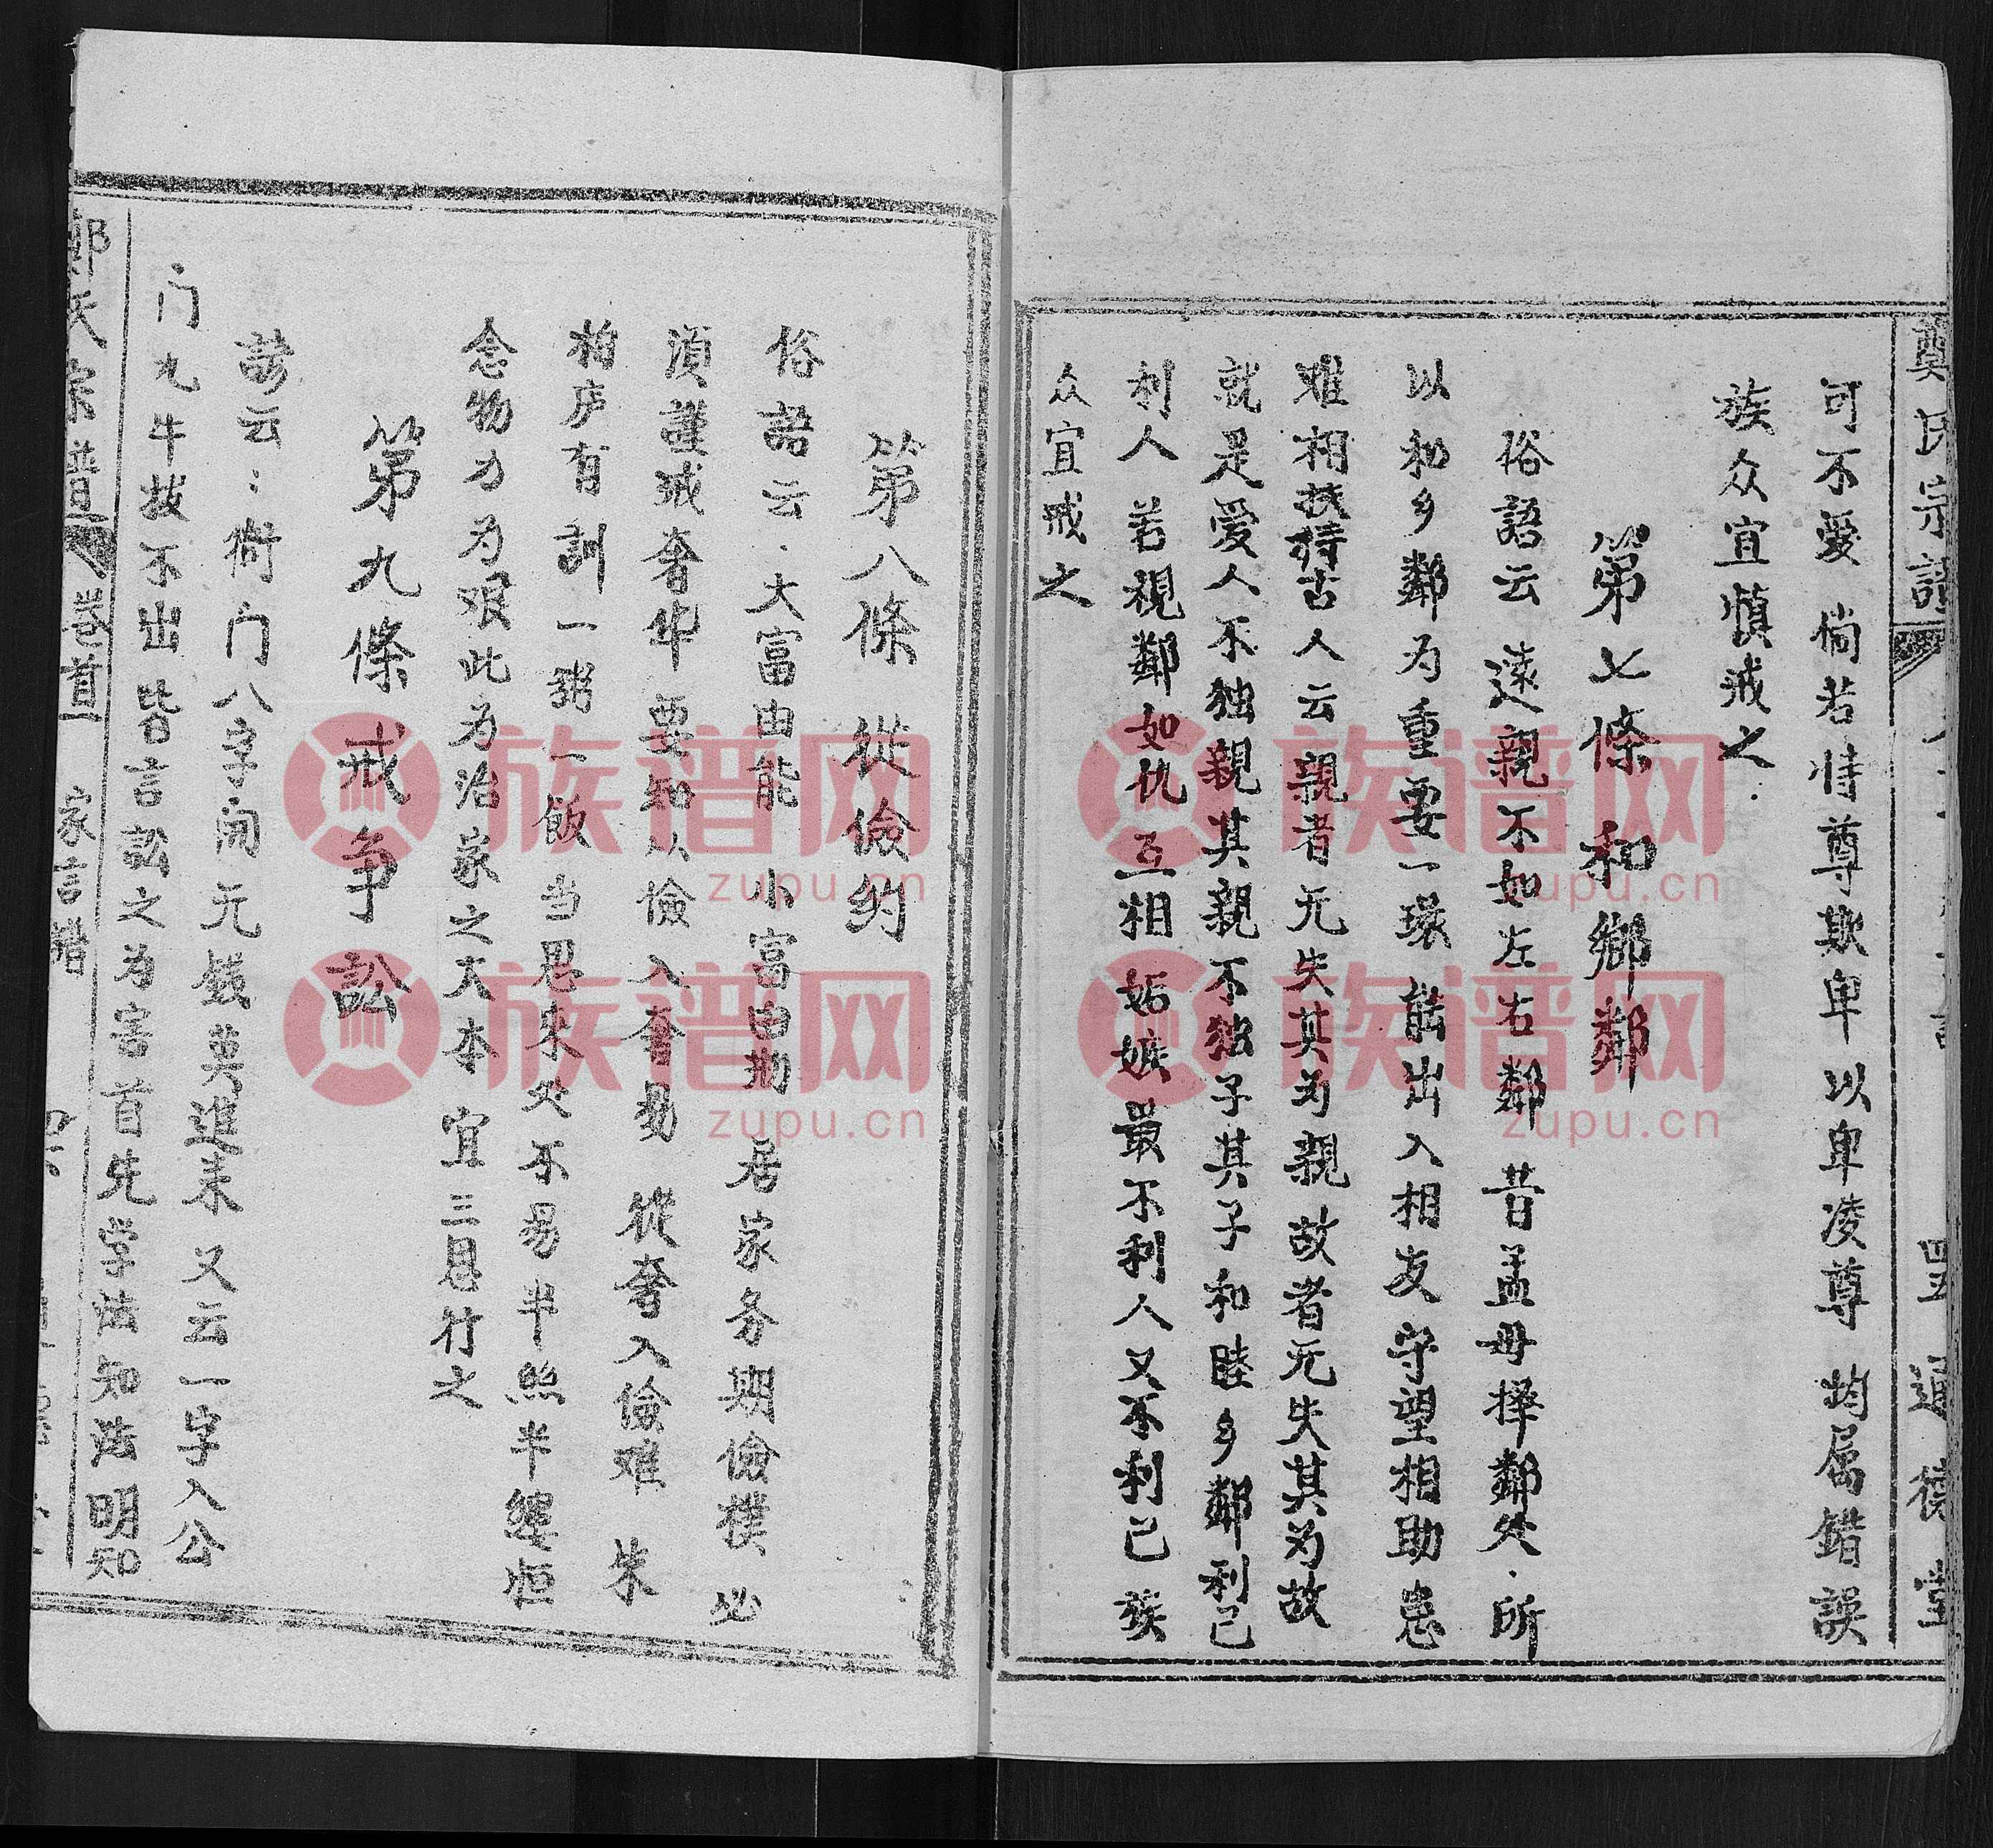 鄭氏宗譜
可不爱 倘若恃尊欺卑以卑凌尊 均属错误
族众宜慎戒之.
第七條 和鄉鄰
俗語云 遠親不如左右鄰 昔孟母择鄰处.所
以和乡鄰为重要一環 能出入相友守望相助患
难相扶持古人云親者无失其为親 故者无失其为故
就是爱人不独親其親不独子其子和睦乡鄰利己
利人 若視鄰如仇互相妬嫉最不利人又不利己族
众宜戒之
第八條 從儉約
俗語云.大富由能 小富由勤 居家务期儉樸 必
須謹戒奢华 要知从儉入奢易 從奢入儉难 朱
柏庐有訓一粥一飯 当思来处不易半絲半縷恒
念物力为艰此为治家之大本 宜三思行之
第九條 戒争訟
諺云:衙门八字開无钱莫進来 又云一字入公
门九牛拔不出 皆言訟之为害首先学法知法明知
鄭氏宗譜 卷首 家言措
族谱网
zupu.cn
族谱网
zupu.cn
族谱网
zupu.cn
族谱网
zupu.cn